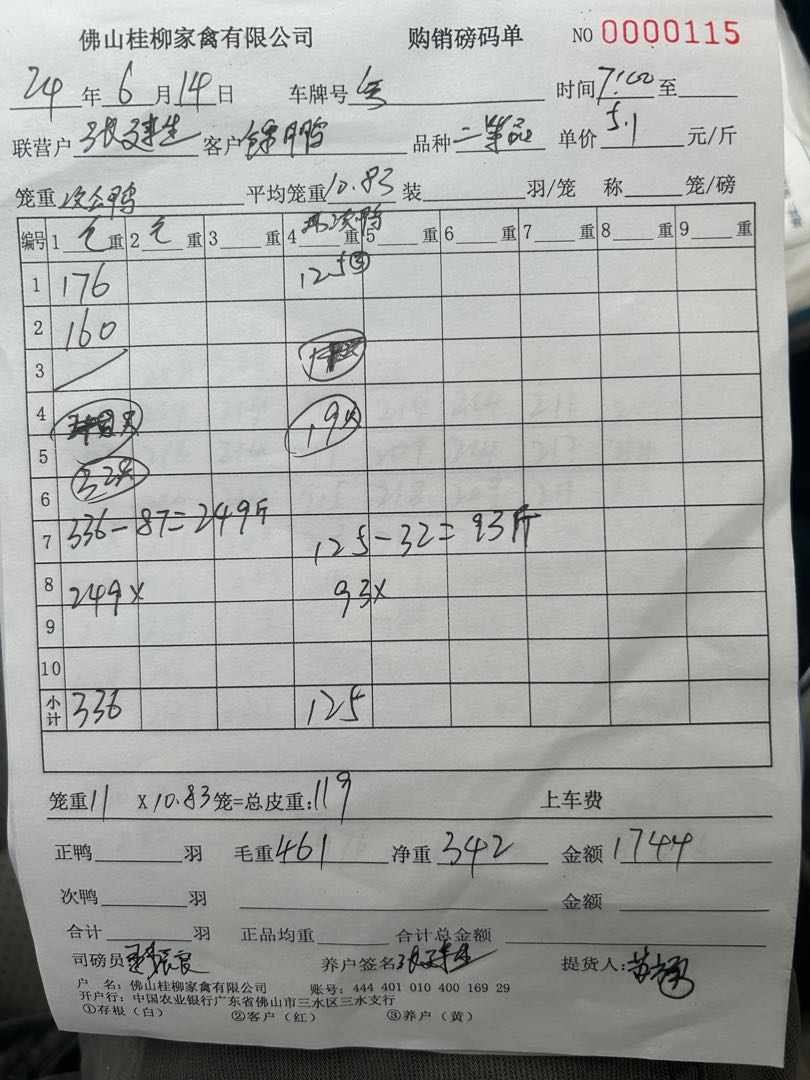 佛山桂柳家禽有限公司 购销磅码单 NO 0000115
24 年 6 月 14 日 车牌号 时间 7:00 至
联营户 张建生 客户 鸭 品种 二等品 单价 5.1 元/斤
笼重 次公鸭 平均笼重 10.83 装 羽/笼 称 笼/磅
编号 1 毛 重 2 毛 重 3 重 4 次鸭 重 5 重 6 重 7 重 8 重 9 重
1 176 125 ③
2 160
3
4 19只
5
6 32只
7 336-87=249斤 125-32=93斤
8 249X 93X
9
10
小计 336 125
笼重 11 X 10.83 笼=总皮重: 119 上车费
正鸭 羽 毛重 461 净重 342 金额 1744
次鸭 羽 金额
合计 羽 正品均重 合计总金额
司磅员 养户签名 张建生 提货人:
户 名: 佛山桂柳家禽有限公司 账号: 444 401 010 400 169 29
开户行: 中国农业银行广东省佛山市三水区三水支行
①存根(白) ②客户(红) ③养户(黄)